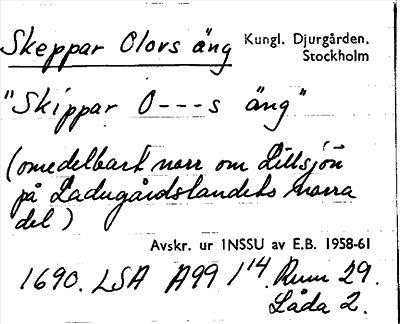 Skeppar Olovs äng Kungl. Djurgården,
Stockholm
"Skippar O---s äng"
(omedelbart norr om Lillsjön
på Ladugårdslandets norra
del)
Avskr. ur INSSU av E.B. 1958-61
1690. LSA A99 1/14. Rum 29.
Låda 2.